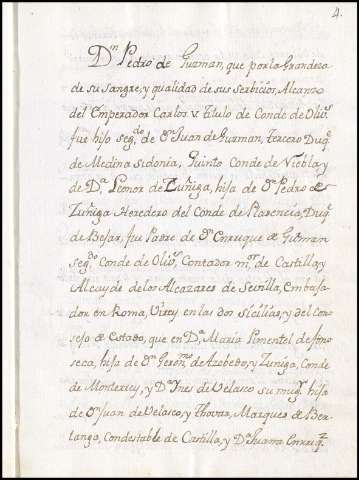 4.
Dn Pedro de Guzman, que por la Grandeza
de su sangre, y qualidad de sus serbicios, Alcanzo
del Emperador Carlos V titulo de Conde de Olivs
fue hijo segdo de Dn Juan de Guzman, tercero Duqe
de Medina sidonia, Quinto Conde de Niebla, y
de Da Leonor de Zuñiga, hija de Dn Pedro de
Zuñiga Heredero del Conde de Plarencia, Duqe
de Bejar, fue Padre de Dn Enrrique de Guzman
segdo Conde de Olivs, Contador mor de Castilla, y
Alcayde de los Alcazares de Sevilla, Embaja
dor en Roma, Virrey en las dos sicilias, y del Con
sejo de Estado, que en Da Maria Pimentel de fon
seca, hija de Dn Geronmo de Azebedo, y Zuñiga, Conde
de Monterrey, y Da Ynes de Velasco su mugr hija
de Dn Juan de Velasco, y Thovar, Marques de Ber
langa, Condestable de Castilla, y Da Juana Enrriqz